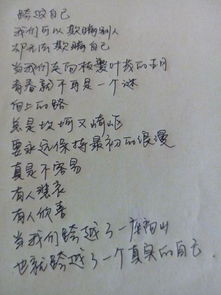 跨越自己
我们可以欺瞒别人
却无法欺瞒自己
当我们走向枝繁叶茂的五月
青春就不再是一个谜
向上的路
总是坎坷又崎岖
要永远保持最初的浪漫
真是不容易
有人悲哀
有人欣喜
当我们跨越了一座高山
也就跨越了一个真实的自己